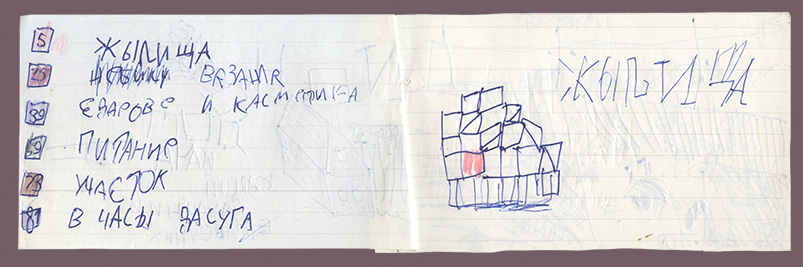 5 ЖЫЛИЩА
ВЯЗАНИЯ
39 ЕДАРОВЕ И КАСМЕТИКА
59 ПИТАНИЕ
73 УЧАСТОК
81 В ЧАСЫ ДАСУГА
ЖЫЛИЩА